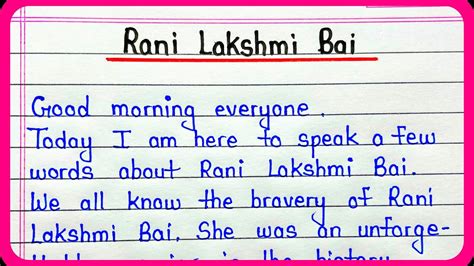 Rani Lakshmi Bai
Good morning everyone.
Today I am here to speak a few
words about Rani Lakshmi Bai.
We all know the bravery of Rani
Lakshmi Bai. She was an unforge-
in the history